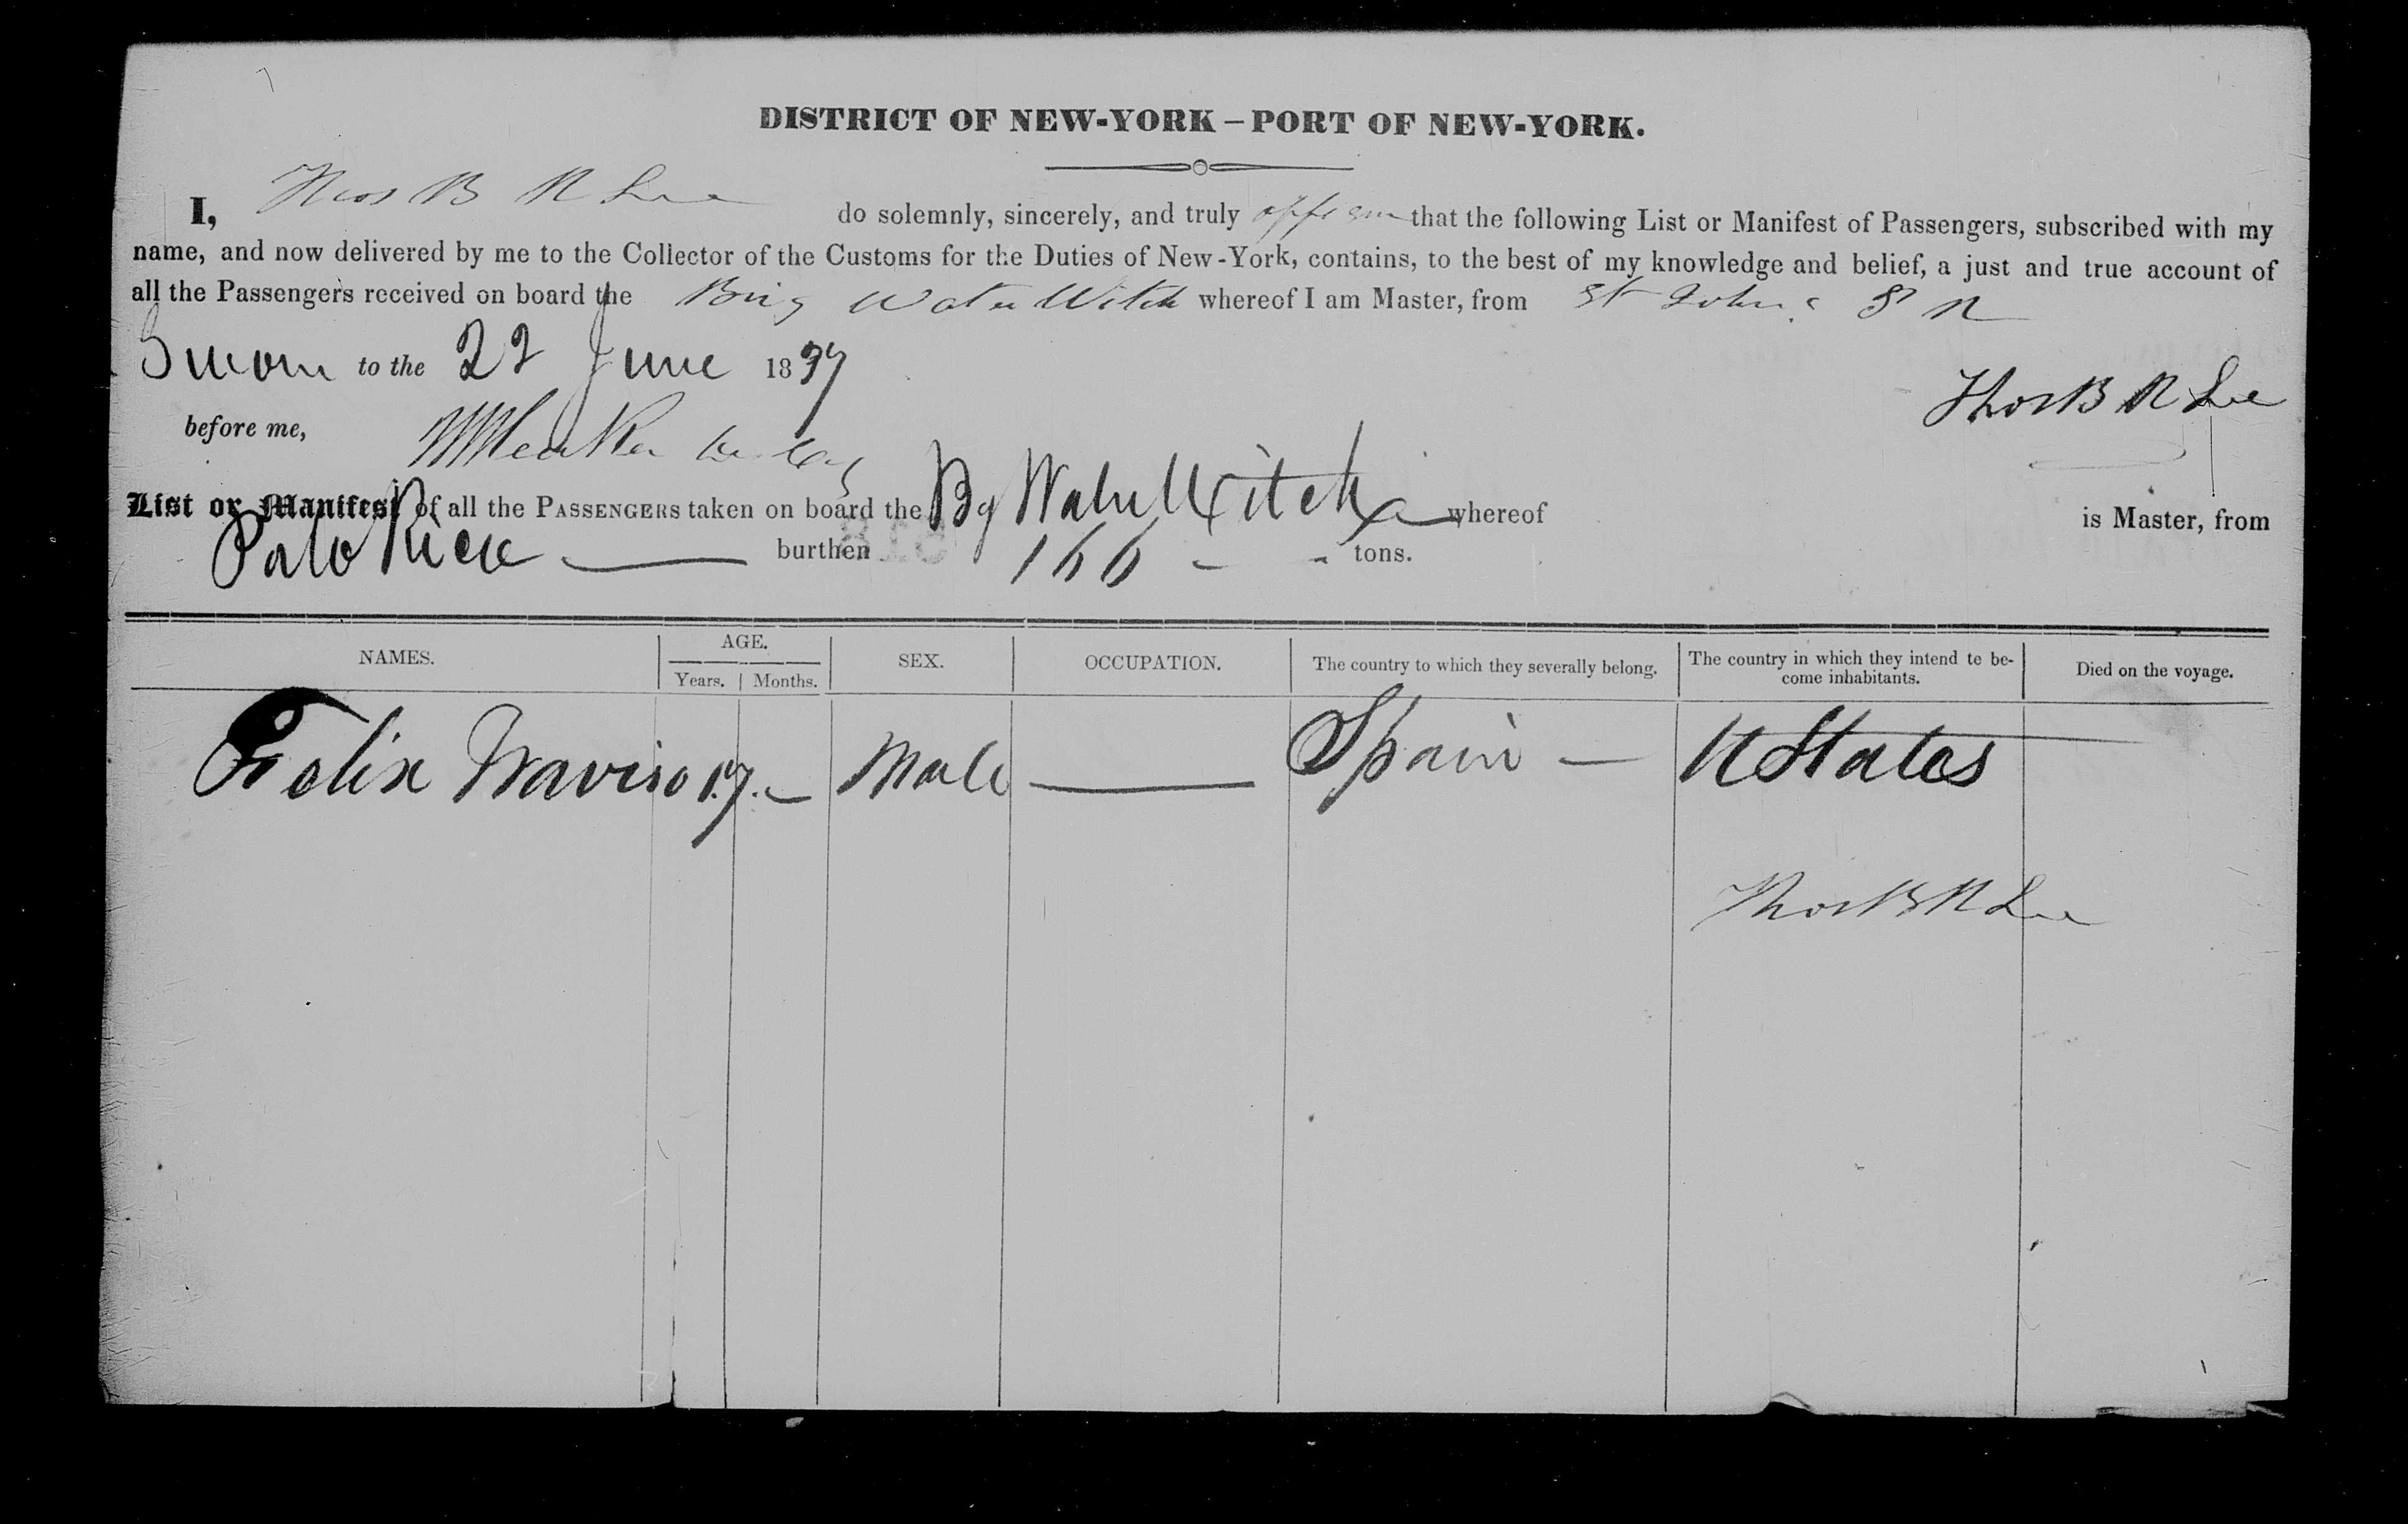 DISTRICT OF NEW-YORK – PORT OF NEW-YORK.
I, Thos B R Lee do solemnly, sincerely, and truly affirm that the following List or Manifest of Passengers, subscribed with my
name, and now delivered by me to the Collector of the Customs for the Duties of New-York, contains, to the best of my knowledge and belief, a just and true account of
all the Passengers received on board the Brig Water Witch whereof I am Master, from St Johns P R
Sworn to the 22 June 1837
Thos B R Lee
before me,
List or Manifest of all the PASSENGERS taken on board the Bg Water Witch whereof is Master, from
Porto Rico burthen 166 tons.
NAMES. AGE. SEX. OCCUPATION. The country to which they severally belong. The country in which they intend to be-
come inhabitants. Died on the voyage.
Years. Months.
Felix 17. – Male — Spain — U States
Thos B R Lee